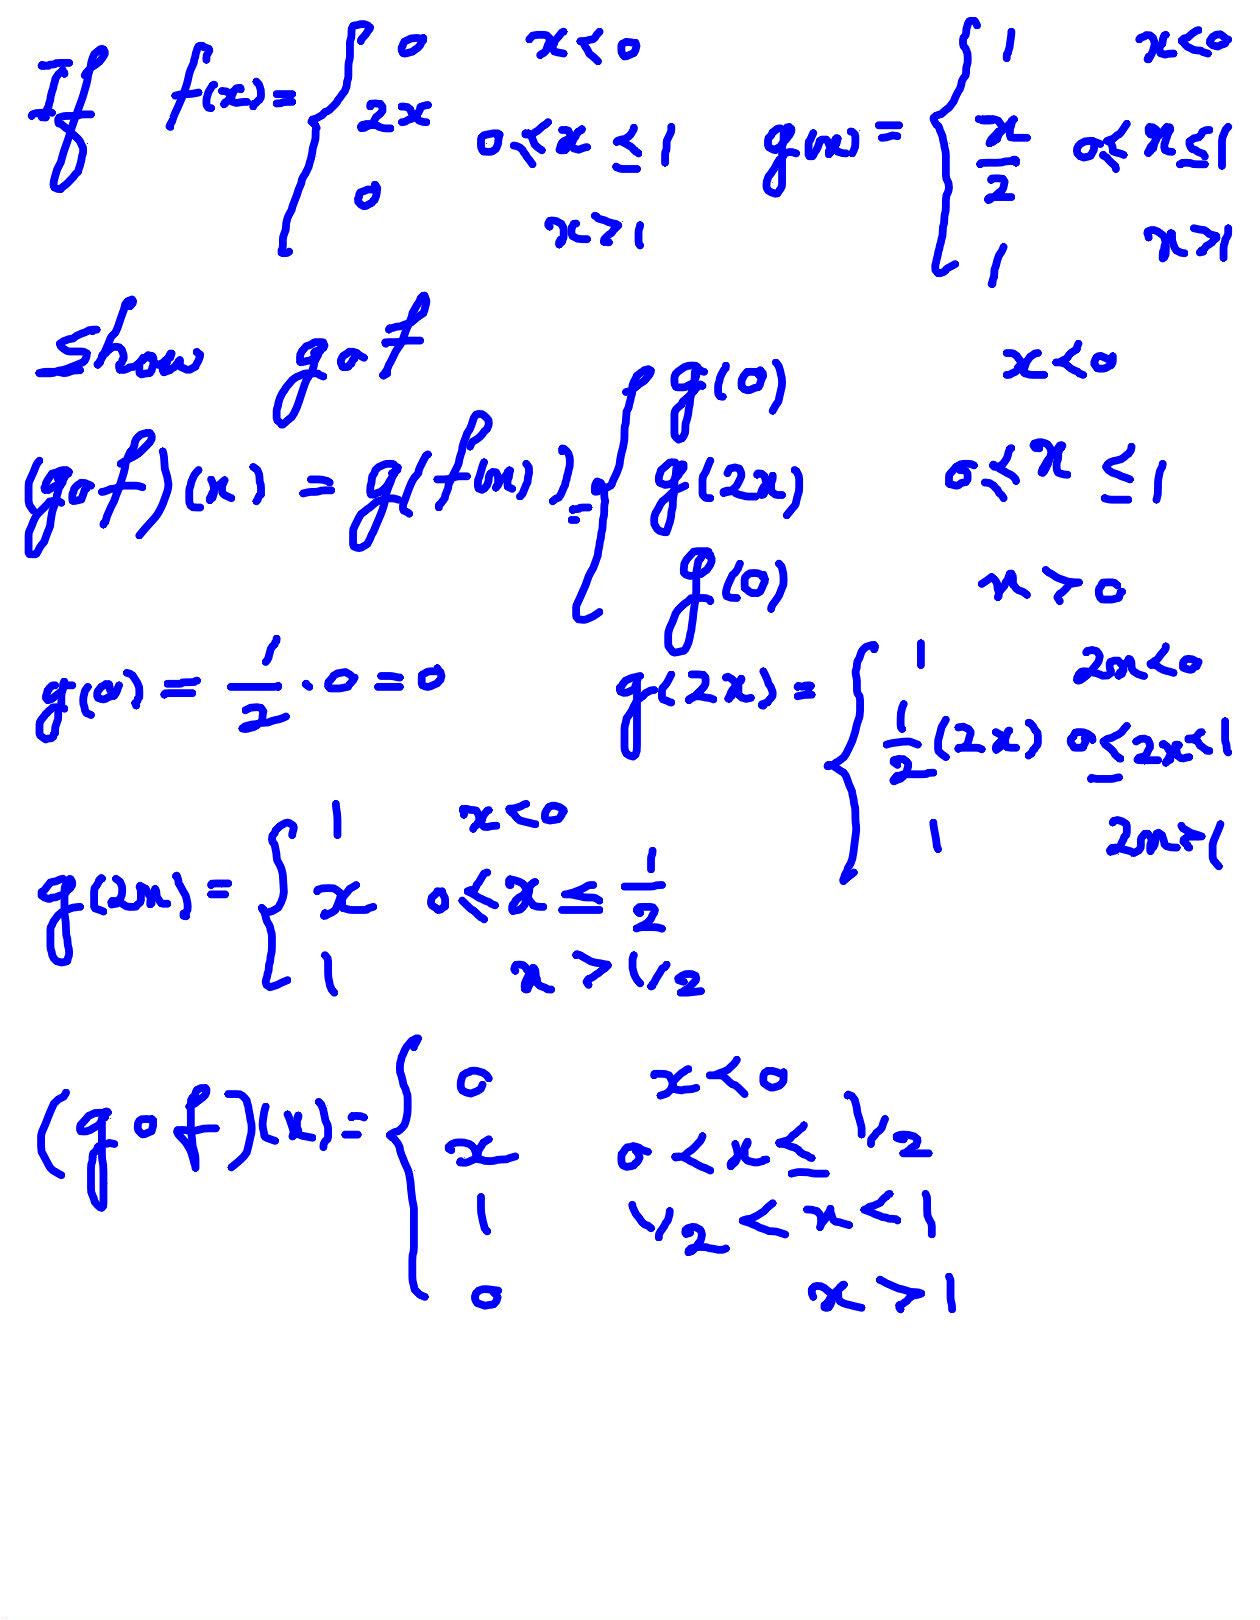 If f(x) = { 0 x<0
2x 0≤x≤1
0 x>1
g(x) = { 1 x<0
x/2 0≤x≤1
1 x>1
Show gof
(gof)(x) = g(f(x)) = { g(0) x<0
g(2x) 0≤x≤1
g(0) x>0
g(0) = 1/2 · 0 = 0
g(2x) = { 1 2x<0
1/2 (2x) 0≤2x<1
1 2x>1
g(2x) = { 1 x<0
x 0≤x≤1/2
1 x>1/2
(gof)(x) = { 0 x<0
x 0<x≤1/2
1 1/2<x<1
0 x>1